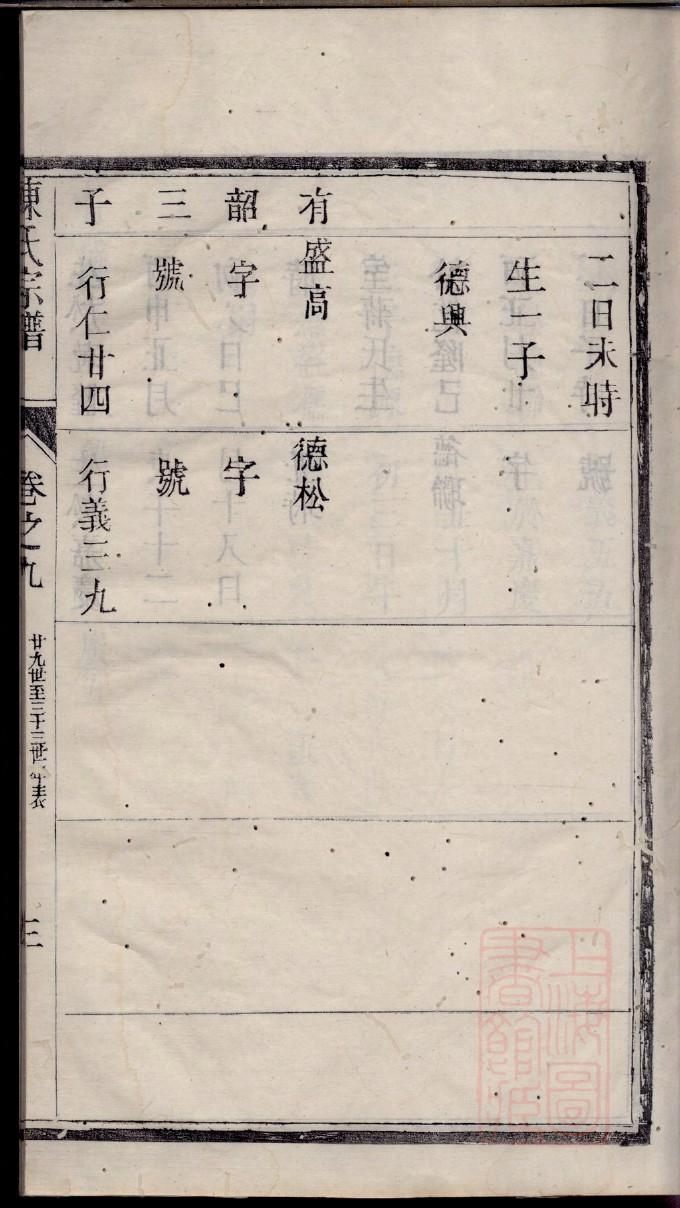 二日未時
生一子
德興
有
韶
三
子
盛高
字
號
行仁廿四
德松
字
號
行義三九
陳氏宗譜
卷之九
廿九世至三十三世年表
三
上海圖
書館臧